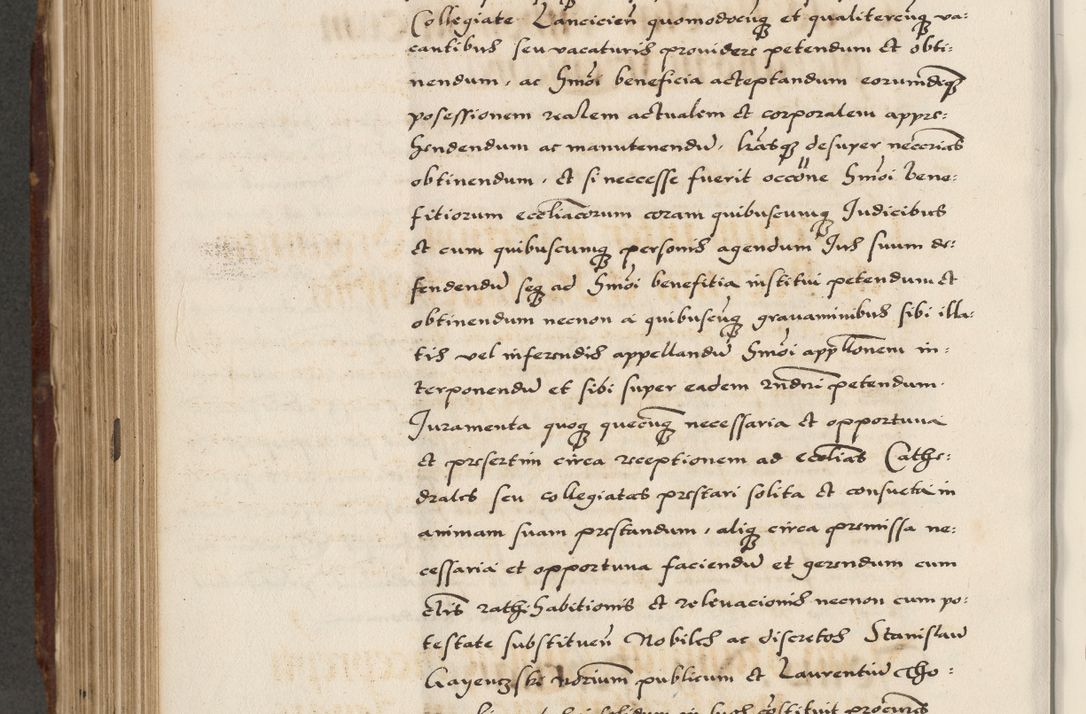 Collegiate Lancicień quomodocuq et qualitercuq va:
cantibus seu vacaturis providere petendum et obti:
nendum, ac Hmoi beneficia acceptandum eorumdeq
posessionem realem actualem et corporalem appre:
hendendum ac manutenendu, lrasq desuper neccrias
obtinendum, et si neccesse fuerit occone Hmoi bene:
fitiorum eccliacorum coram quibuscumq Judicibus
et cum quibuscumq personis agendum Jus suum de:
fendendu seq ad Hmoi benefitia institui petendum et
obtinendum necnon a quibuscuq gravaminibus sibi illa:
tis vel inferendis appellandu Hmoi applonem in:
terponendu et sibi super eadem rndri petendum.
Juramenta quoq quecuq necessaria et opportuna
et presertim circa receptionem ad ecclias Cathe:
drales seu collegiatas prestari solita et consueta in
animam suam prestandum, aliq circa premissa ne:
cessaria et opportuna faciendu et gerendum cum
clis rathihabitionis et relevacionis necnon cum po:
testate substituen Nobiles ac discretos Stanislau
Gayewski notrium publicum et Laurentiu Tho:
solidum in constituit procures